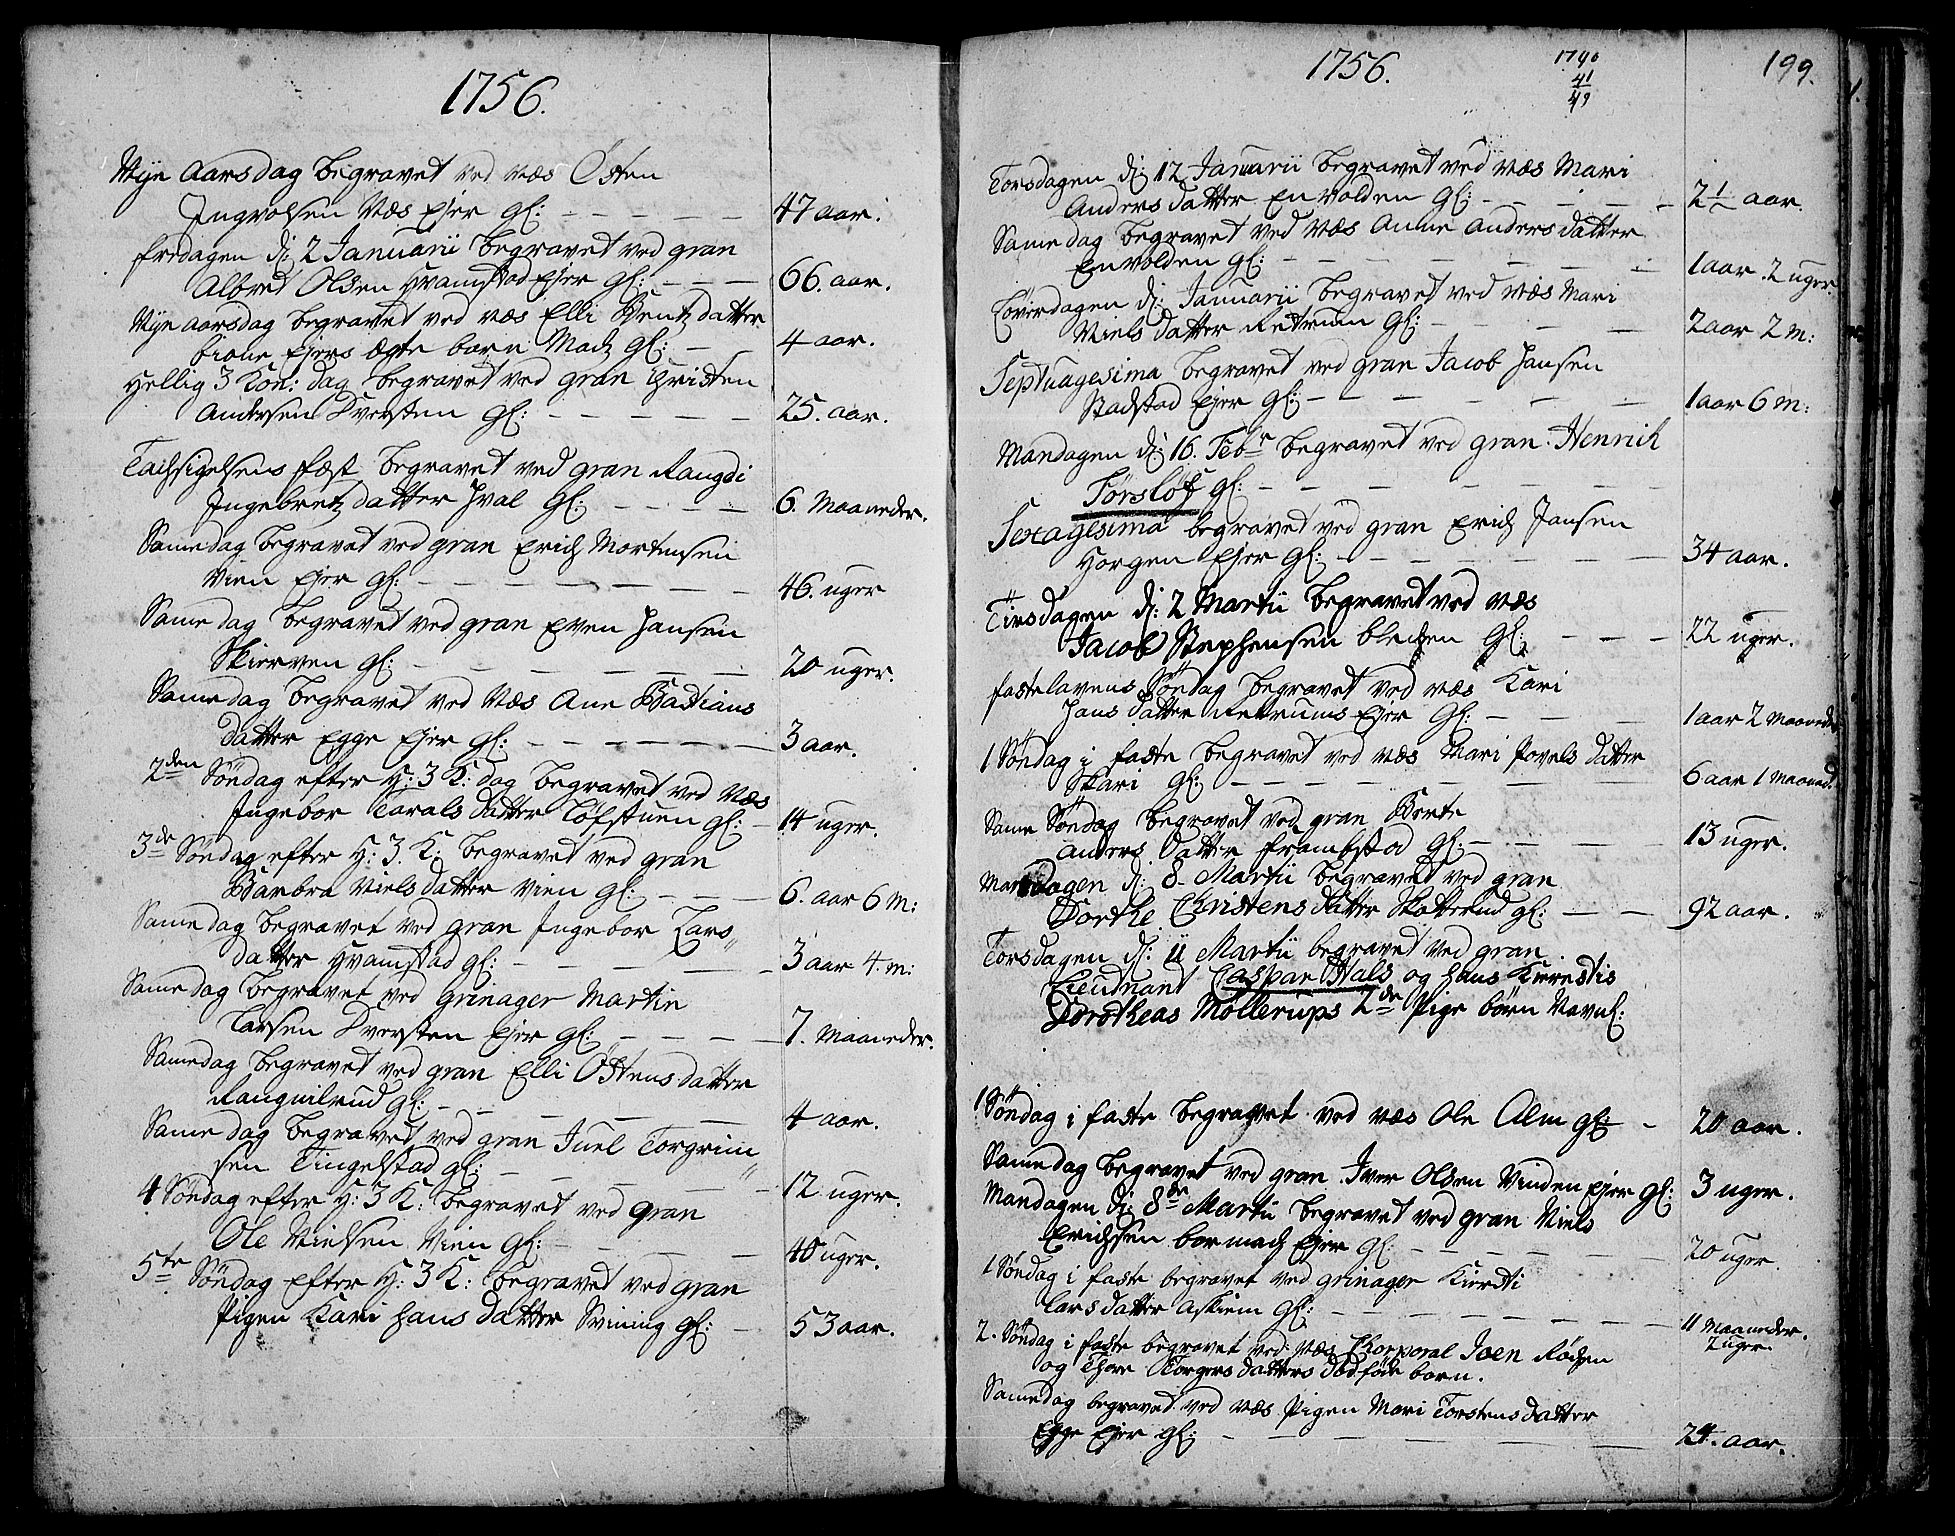 1756.
Nÿe Aarsdag begravet ved Næs Østen
Ingvolsen Næs Ejer gl: 47 aar.
fredagen d: 2 Januarii begravet ved gran
Albret Olsen Hvamstad Ejer gl: 66. aar.
Nÿe aarsdag begravet ved Næs Elli Bentz datter
Ejers Ægte barn Madz gl: 4 aar.
Hellig 3 Kon: dag begravet ved gran Christen
Andersen Dversten gl: 25. aar.
Tachsigelsens fæst begravet ved gran Rangdi
Ingebretz datter Hval gl: 6. Maaneder.
Same dag begravet ved gran Erich Mortensen
Vien Ejer gl: 46. uger
Same dag begravet ved gran Even Hansen
Skierven gl: 20 uger.
Same dag begravet ved Næs Ane Bastians
datter Egge Ejer gl: 3 aar.
2den Søndag efter H: 3 K: dag begravet ved Næs
Ingebor Tarals datter Løfstuen gl: 14 uger.
3de Søndag efter H: 3. K: begravet ved gran
Barbra Niels datter Vien gl: 6. aar 6 m:
Same dag begravet ved gran Ingebor Lars
datter Hvamstad gl: 3 aar 4. m:
Same dag begravet ved Grinager Martin
Larsen Dversten Ejer gl: 7. Maaneder.
Same dag begravet ved gran Elli Østens datter
Ranguilrud gl: 4 aar.
Same dag begravet ved gran Juel Torgrim
sen Tingelstad gl: 12 uger.
4 Søndag efter H: 3 K: begravet ved gran
Ole Nielsen Vien gl: 40 uger.
5te Søndag Efter H: 3 K: begravet ved gran
Pigen Kari Hans datter Svining gl: 53 aar.
1756.
1740
41
49
199.
Torsdagen d: 12 Januarii begravet ved Næs Mari
Anders datter Envolden gl: 2 1/2 aar.
Same dag begravet ved Næs Anne Anders datter
Envolden gl: 1 aar. 2 uger.
Löverdagen d: Januarii begravet ved Næs Mari
Niels datter Retrum gl: 2 aar 2 m:
Septuagesima begravet ved gran Jacob Hansen
Stadstad Ejer gl: 1 aar 6 m:
Mandagen d: 16. Febr begravet ved gran Henrich
Førsløf gl:
Sexagesima begravet ved gran Erich Jansen
Horgen Ejer gl: 34 aar.
Tirsdagen d: 2 Martii begravet ved Næs
Jacob Stephensen Blechen gl: 22 uger.
fastelavens Søndag begravet ved Næs Kari
Hans datter Retrums Ejer gl: 1 aar 2 Maaneder
1 Søndag i faste begravet ved Næs Mari Povels datter
Skari gl: 6 aar 1 Maaned.
Same Søndag begravet ved gran Berte
Anders datter Frambstad gl: 13 uger.
Mandagen d: 8. Martii begravet ved gran
Dorthe Christens datter Skatterud gl: 92 aar.
Torsdagen d: 11 Martii begravet ved gran
Lieutnant Caspar Hals og Hans Kierestis
Dorotheas Møllerups 2de Pige børn Navnl:
1 Søndag i faste begravet ved Næs Ole Alm gl: 20 aar.
Same dag begravet ved gran Iver Olsen Vinden Ejer gl: 3 uger.
Mandagen d: 8de Martii begravet ved gran Niels
Erichsen Ejer gl: 20 uger
1 Søndag i faste begravet ved grinager Kiersti
Lars datter Askiem gl: 11 Maaneder. 2 uger.
2. Søndag i faste begravet ved Næs Chorporal Joen Røchen
og Thore Torgers datters Dødføde barn.
Same dag begravet ved Næs Pigen Mari Torstens datter
Egge Ejer gl: 24. aar.